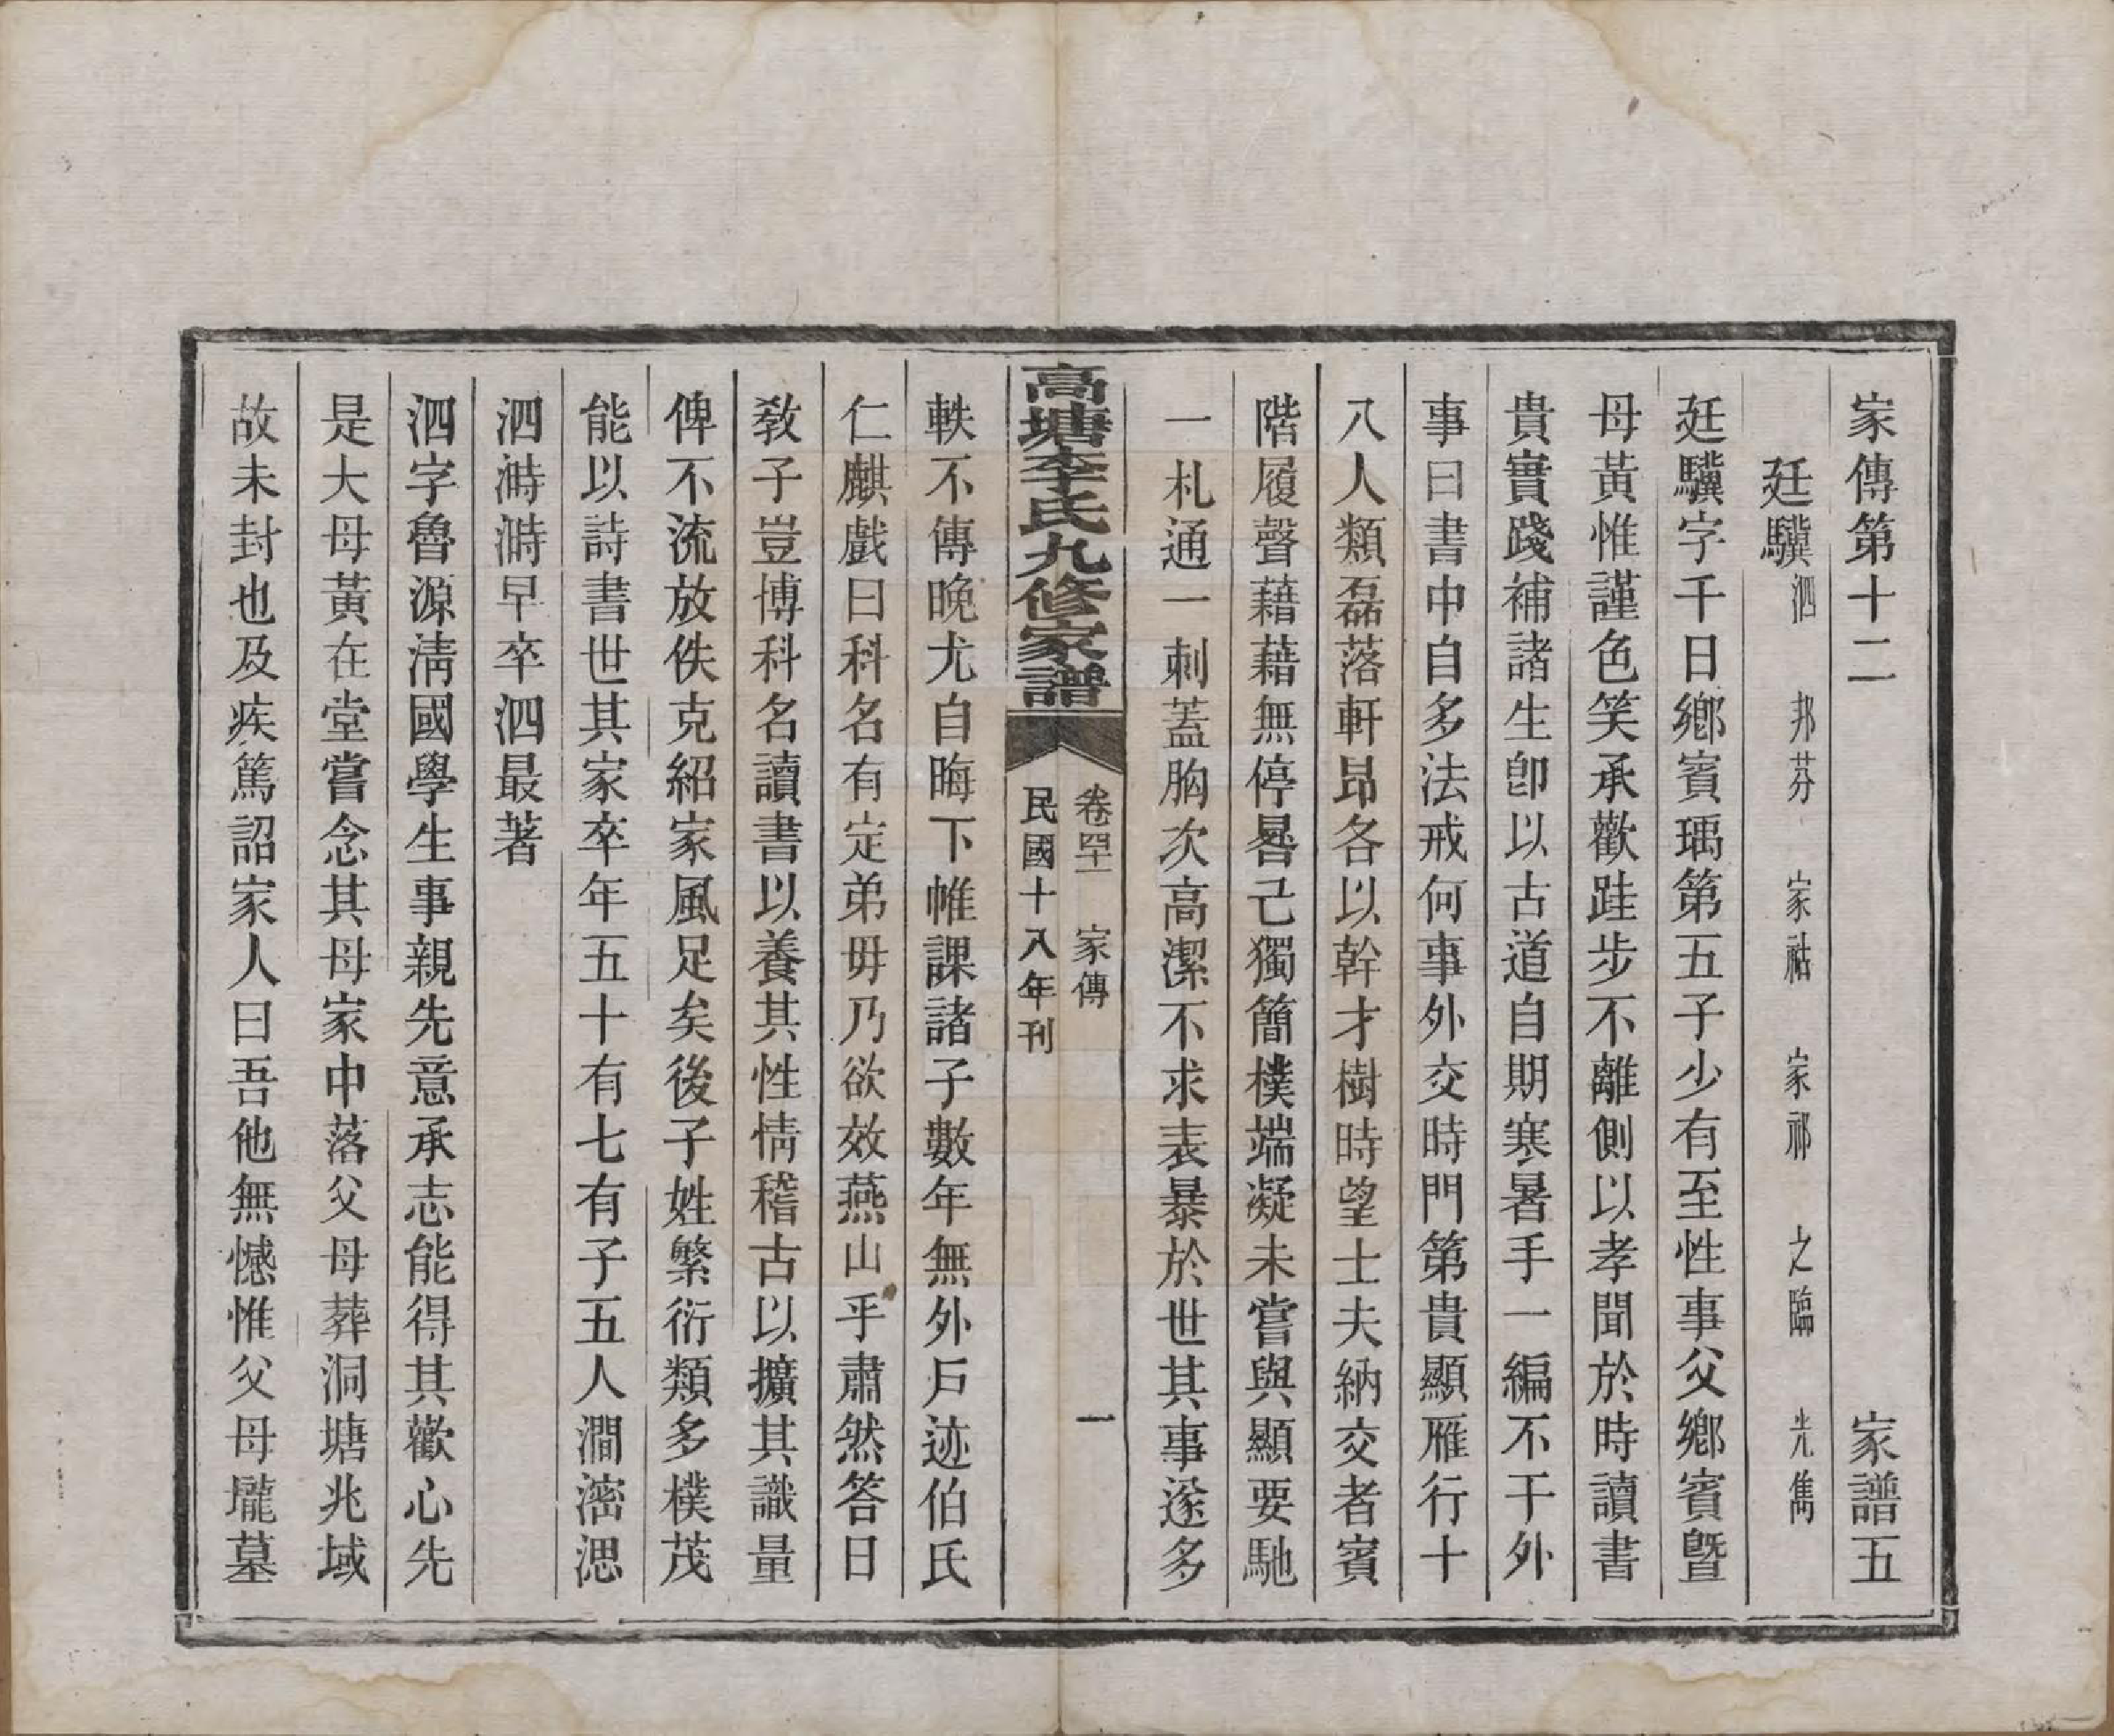 家傳第十二　家譜五
廷驥 泗 邦芬 家祜 家祁 之臨 光雋
廷驥字千日鄉賓瑀第五子少有至性事父鄉賓曁
母黃惟謹色笑承歡跬步不離側以孝聞於時讀書
貴實踐補諸生卽以古道自期寒暑手一編不干外
事曰書中自多法戒何事外交時門第貴顯雁行十
八人類磊落軒昂各以幹才樹時望士夫納交者賓
階履聲藉藉無停晷己獨簡樸端凝未嘗與顯要馳
一札通一刺蓋胸次高潔不求表暴於世其事遂多
高塘李氏九修家譜
卷四十一 家傳 一
民國十八年刊
軼不傳晚尤自晦下帷課諸子數年無外戶迹伯氏
仁麒戲曰科名有定弟毋乃欲效燕山乎肅然答曰
敎子豈博科名讀書以養其性情稽古以擴其識量
俾不流放佚克紹家風足矣後子姓繁衍類多樸茂
能以詩書世其家卒年五十有七有子五人澗滵㴓
泗溡溡早卒泗最著
泗字魯源淸國學生事親先意承志能得其歡心先
是大母黃在堂嘗念其母家中落父母葬洞塘兆域
故未封也及疾篤詔家人曰吾他無憾惟父母壠墓